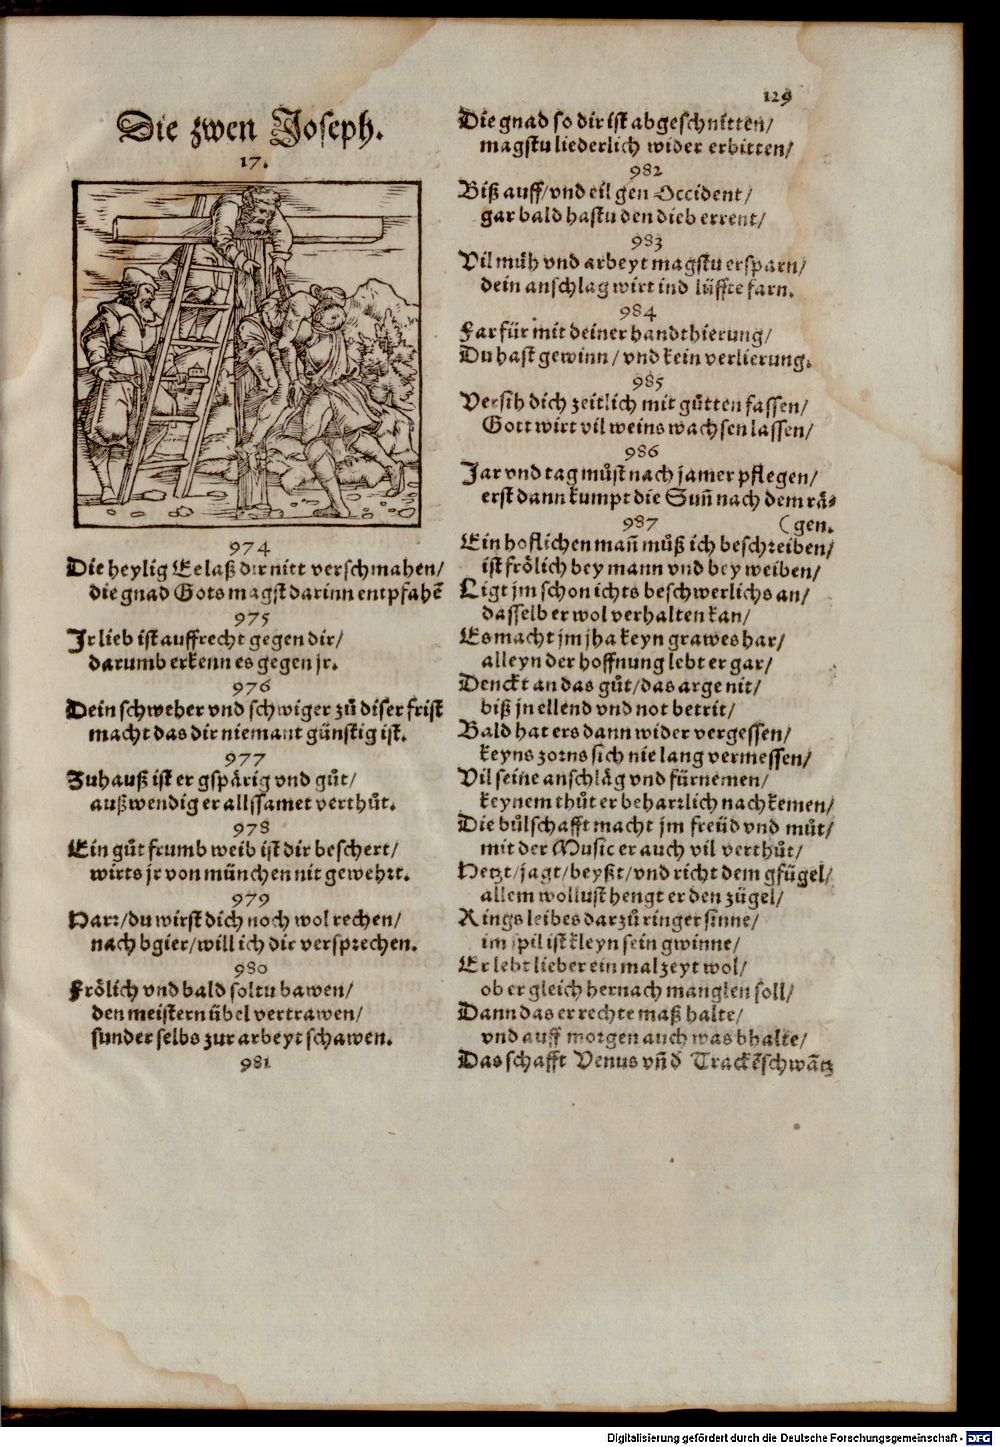 129
Die zwen Joseph.
17.
974
Die heylig Ee laß dir nitt verschmahen/
die gnad Gots magst darinn entpfahē
975
Jr lieb ist auffrecht gegen dir/
darumb erkenn es gegen jr.
976
Dein schweher vnd schwiger zů diser frist
macht das dir niemant günstig ist.
977
Zuhauß ist er gspärig vnd gůt/
außwendig er allssamet verthůt.
978
Ein gůt frumb weib ist dir beschert/
wirts jr von münchen nit gewehrt.
979
Harr/du wirst dich noch wol rechen/
nach bgier/will ich dir versprechen.
980
Frölich vnd bald soltu bawen/
den meistern übel vertrawen/
sunder selbs zur arbeyt schawen.
981
Die gnad so dir ist abgeschnitten/
magstu liederlich wider erbitten/
982
Biß auff/vnd eil gen Occident/
gar bald hastu den dieb errent/
983
Vil müh vnd arbeyt magstu ersparn/
dein anschlag wirt ind lüffte farn.
984
Far für mit deiner handthierung/
Du hast gewinn/ vnd kein verlierung.
985
Versih dich zeitlich mit gůtten fassen/
Gott wirt vil weins wachsen lassen/
986
Jar vnd tag můst nach jamer pflegen/
erst dann kumpt die Suñ nach dem rä-
987 (gen.
Ein hoflichen mañ můß ich beschreiben/
ist frölich bey mann vnd bey weiben/
Ligt jm schon ichts beschwerlichs an/
dasselb er wol verhalten kan/
Es macht jm jha keyn grawes har/
alleyn der hoffnung lebt er gar/
Denckt an das gůt/das arge nit/
biß jn ellend vnd not betrit/
Bald hat ers dann wider vergessen/
keyns zorns sich nie lang vermessen/
Vil seine anschläg vnd fürnemen/
keynem thůt er beharrlich nachkemen/
Die bůlschafft macht jm freüd vnd můt/
mit der Music er auch vil verthůt/
Hetzt/jagt/beyßt/vnd richt dem gfügel/
allem wollust hengt er den zügel/
Rings leibes darzů ringer sinne/
im spil ist kleyn sein gwinne/
Er lebt lieber ein mal zeyt wol/
ob er gleich hernach manglen soll/
Dann das er rechte maß halte/
vnd auff morgen auch was bhalte/
Das schafft Venus vñd Trackēschwātz
Digitalisierung gefördert durch die Deutsche Forschungsgemeinschaft - DFG